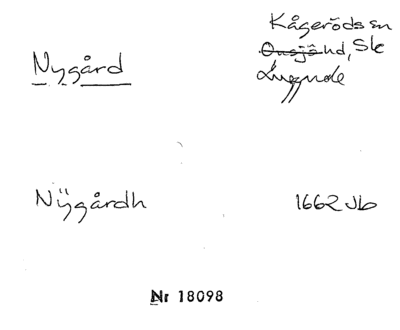 Kågeröds sn
Nygård
Onsjö hd, Sk
Luggude
Nÿgårdh
1662 Jb
Nr 18098